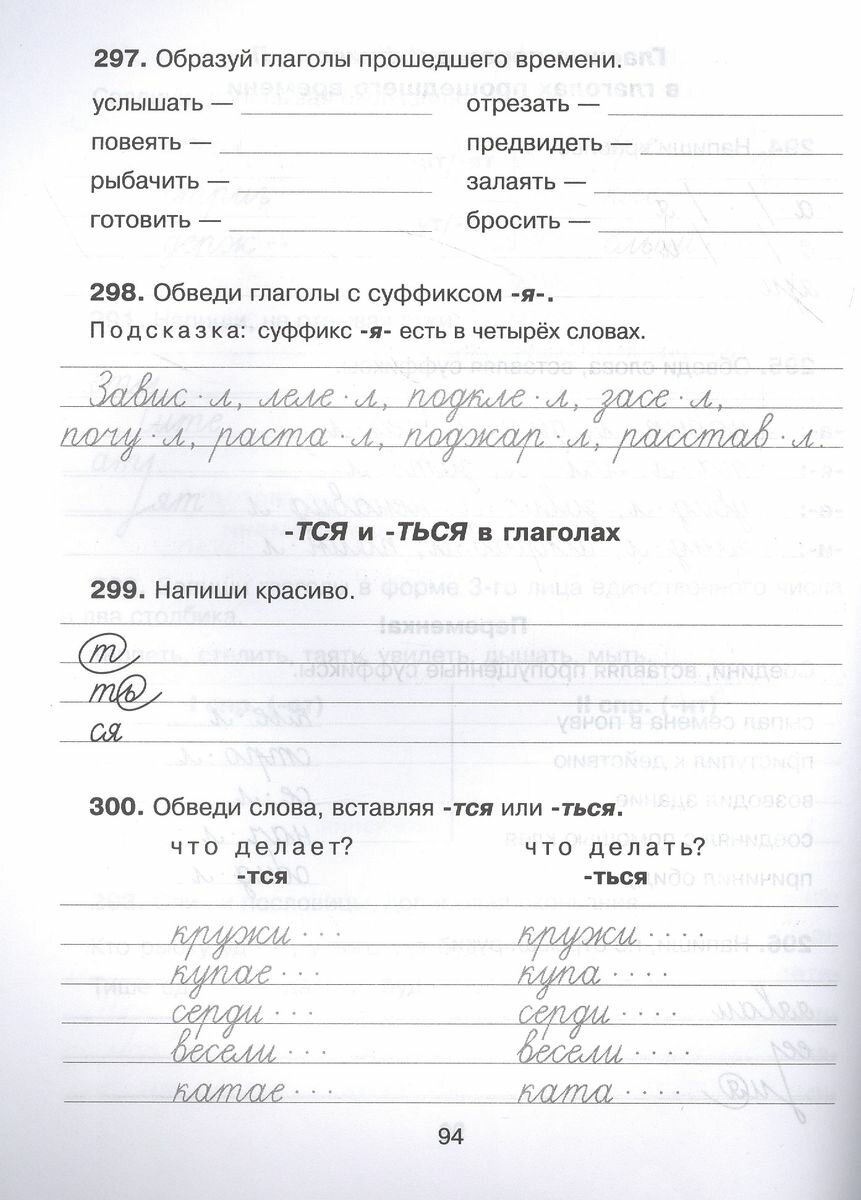 297. Образуй глаголы прошедшего времени.
услышать — отрезать —
повеять — предвидеть —
рыбачить — залаять —
готовить — бросить —
298. Обведи глаголы с суффиксом -я-.
Подсказка: суффикс -я- есть в четырёх словах.
Завис · л, леле · л, подкле · л, засе · л,
почу · л, раста · л, поджар · л, расстав · л.
-ТСЯ и -ТЬСЯ в глаголах
299. Напиши красиво.
т
ть
ся
300. Обведи слова, вставляя -тся или -ться.
что делает? что делать?
-тся -ться
кружи · · · кружи · · · ·
купае · · · купа · · · ·
серди · · · серди · · · ·
весели · · · весели · · · ·
катае · · · ката · · · ·
94